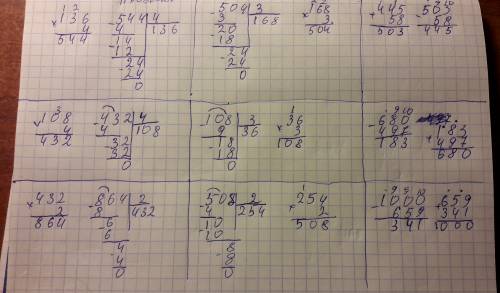 1 2
× 136
4
544
- 544 | 4
4 | 136
- 14
12
- 24
24
0
- 504 | 3
3 | 168
- 20
18
- 24
24
0
× 168
3
504
+ 445
58
503
- 503
58
445
3
× 108
4
432
- 432 | 4
4 | 108
- 32
32
0
- 108 | 3
9 | 36
- 18
18
0
1
× 36
3
108
9 10
- 680
497
183
+ 183
497
680
× 432
2
864
- 864 | 2
8 | 432
- 6
6
- 4
4
0
- 508 | 2
4 | 254
- 10
10
- 8
8
0
1
× 254
2
508
9 9 10
- 1000
659
341
+ 659
341
1000